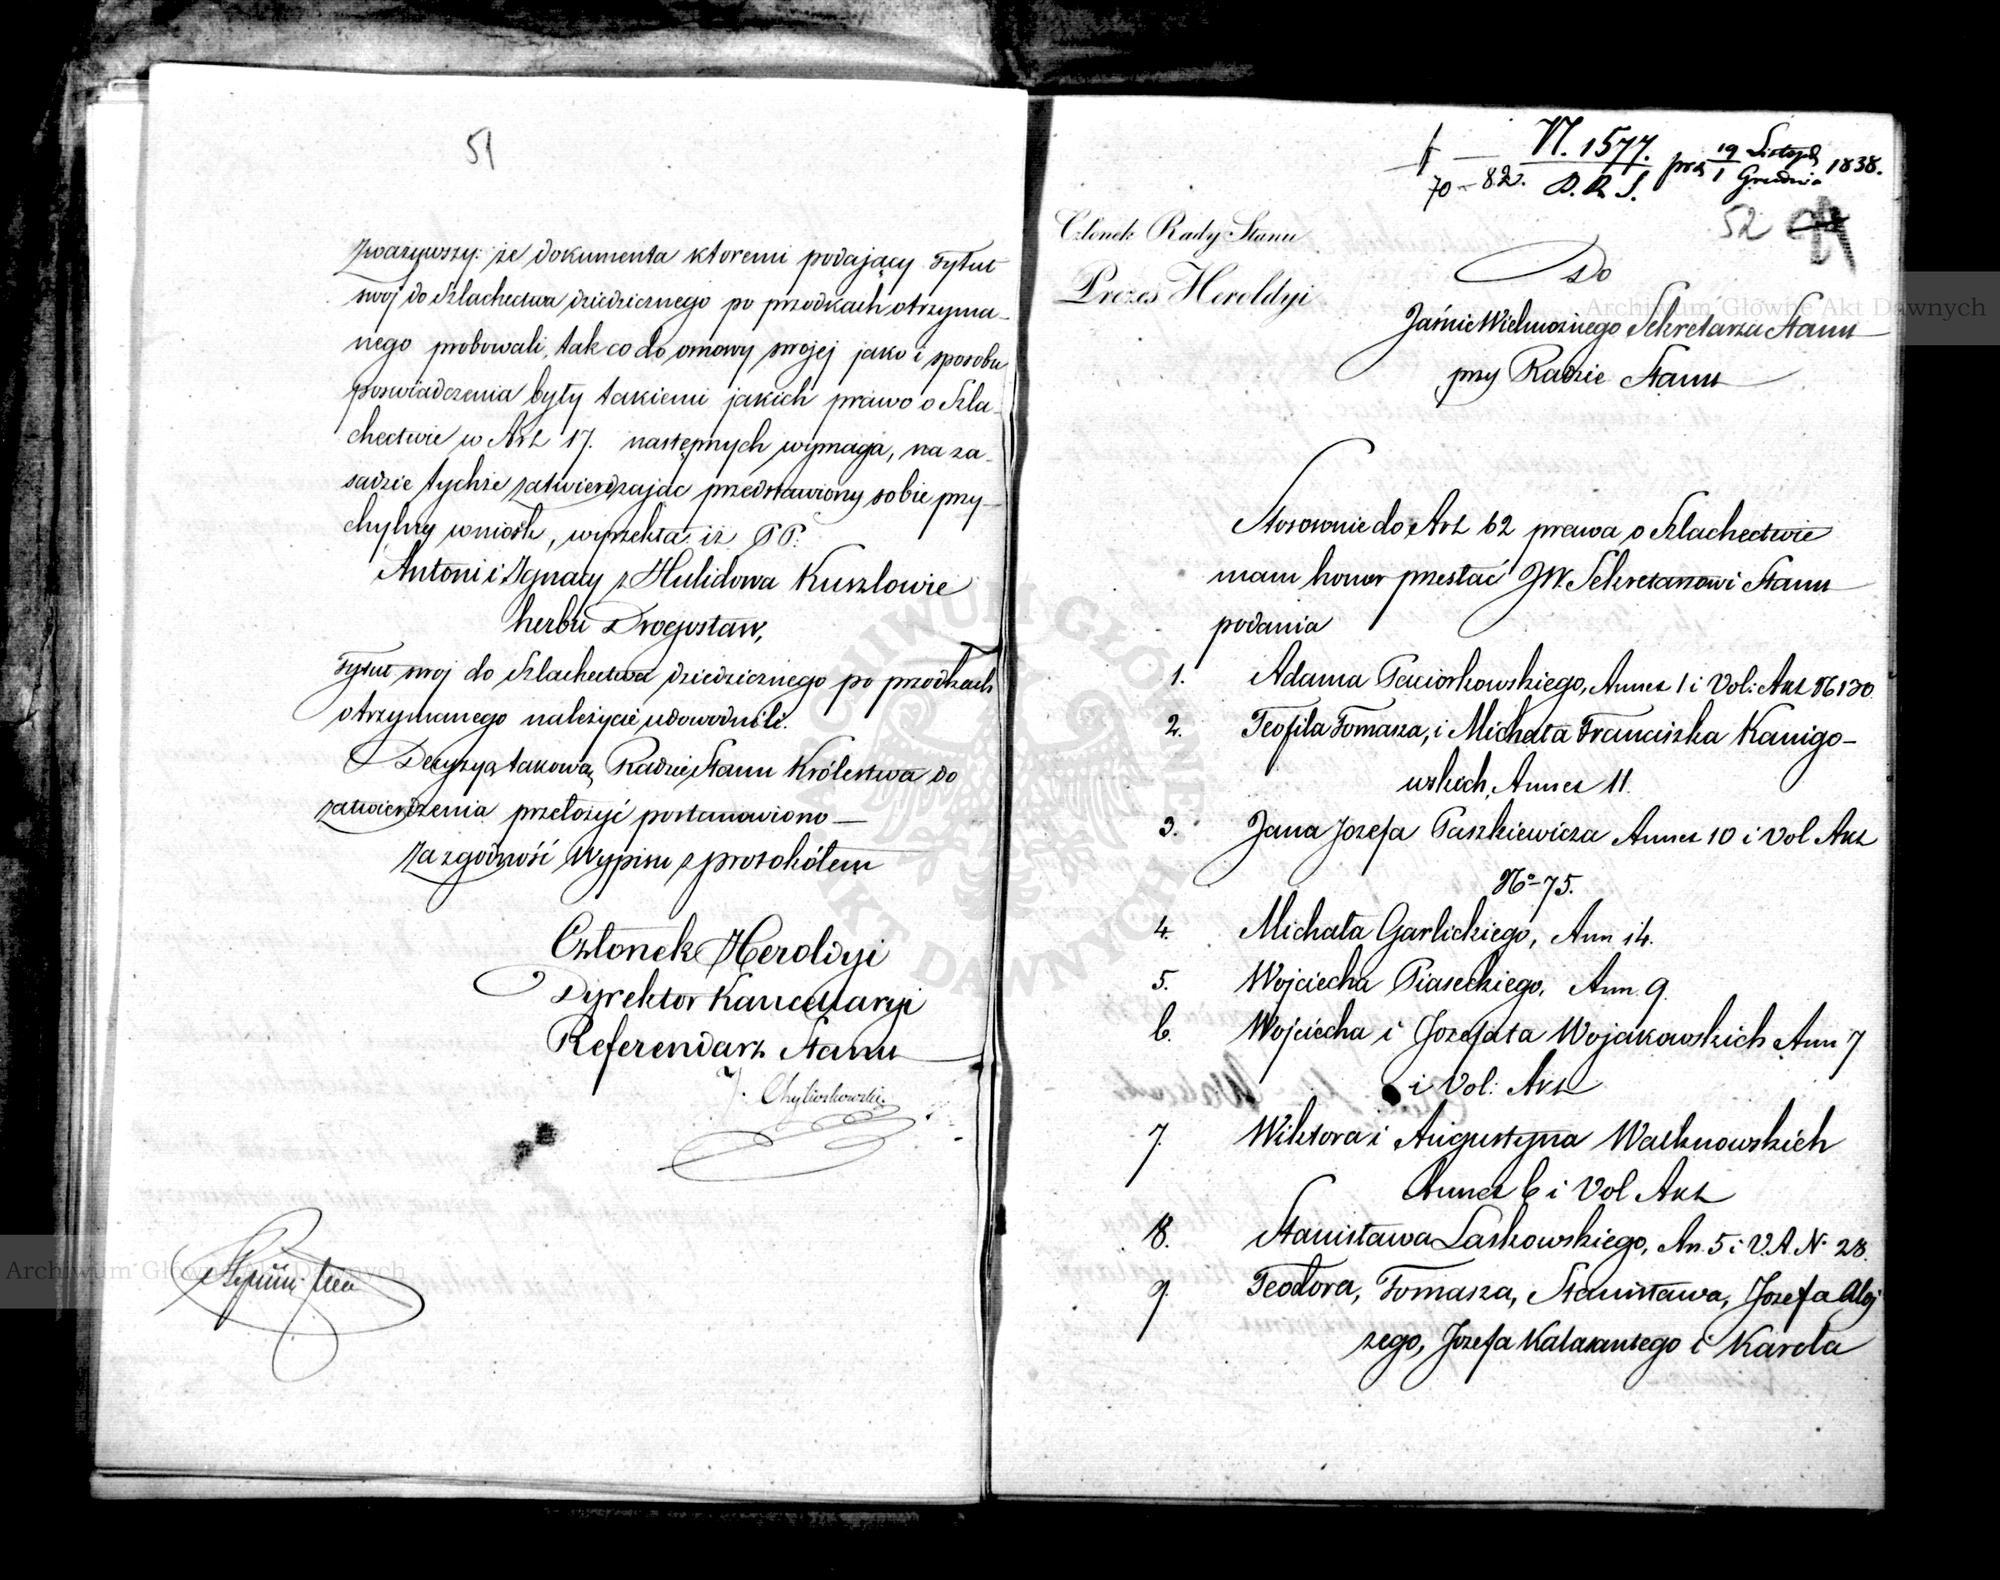 51
Zważywszy: że dokumenta ktoremi podający Tytuł
swoj do Szlachectwa dziedzicznego po przodkach otrzyma-
nego probowali, tak co do osnowy swojej jako i sposobu
poswiadczenia były takiemi jakich prawo o Szla-
chectwie w Art 17. następnych wymaga, na za-
sadzie tychże zatwierdzając przedstawiony sobie przy-
chylny wniosek, wyrzekła iż PP.
Antoni i Ignacy z Hulidowa Kuszlowie
herbu Drogosław,
Tytuł swoj do Szlachectwa dziedzicznego po przodkach
otrzymanego należycie udowodnili.
Decyzyą takową Radzie Stanu Królestwa do
zatwierdzenia przełożyć postanowiono—
Za zgodność Wypisu z protokółem
Członek Heroldyi
Dyrektor Kancellaryi
Referendarz Stanu
J. Chyliczkowski
N. 1577.
70 - 82. D. R. S. prez 19 Listopd 1 Grudnia 1838.
52
Członek Rady Stanu
Prezes Heroldyi
Do
Jaśnie Wielmożnego Sekretarza Stanu
przy Radzie Stanu
Stosownie do Art 62 prawa o Szlachectwie
mam honor przesłać JW. Sekretarzowi Stanu
podania
1. Adama Paciorkowskiego, Annex 1 i Vol: Akt N 130.
2. Teofila Tomasza, i Michała Franciszka Kanigo-
wskich, Annex 11.
3. Jana Jozefa Paszkiewicza Annex 10 i Vol Akt
No 75.
4. Michała Garlickiego, Ann 14.
5. Wojciecha Piaseckiego, Ann. 9.
6. Wojciecha i Jozefata Wojakowskich Ann 7
i Vol: Akt
7. Wiktora i Augustyna Walknowskich
Annex 6 i Vol Akt
8. Stanisława Laskowskiego, An. 5 i V. A. N. 28.
9. Teodora, Tomasza, Stanisława, Jozefa Aloj
zego, Jozefa Kalasantego i Karola
Archiwum Główne Akt Dawnych
Archiwum Główne Akt Dawnych
ARCHIWUM GŁÓWNE AKT DAWNYCH